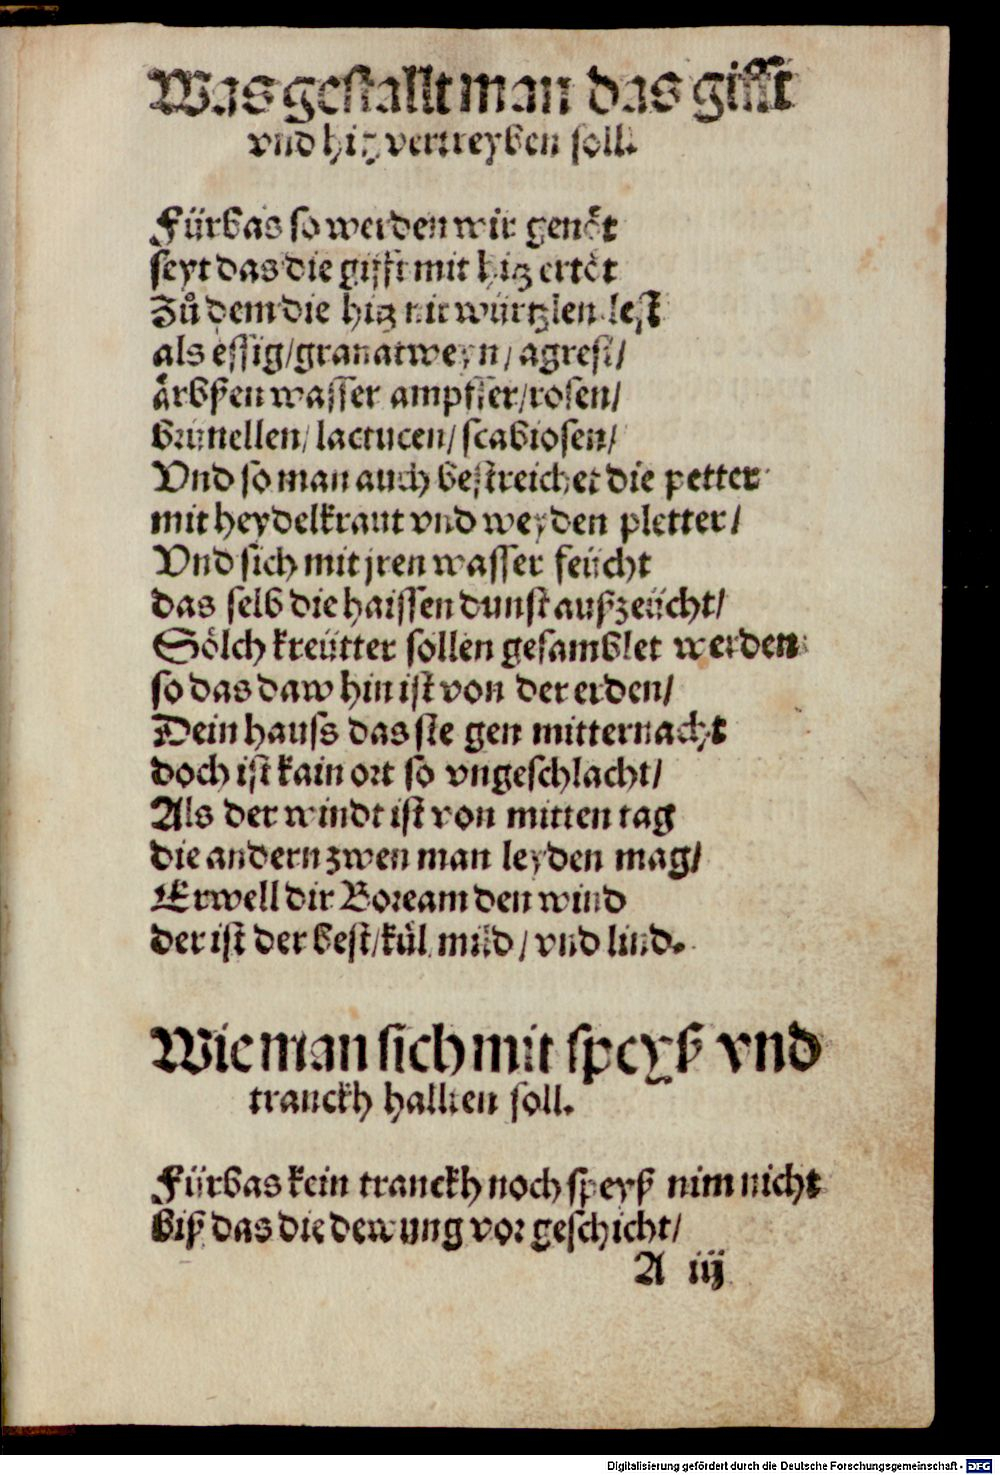 Was gestallt man das gifft
vnd hitz vertreyben soll.
Fürbas so werden wir genöt
seyt das die gifft mit hitz ertöt
Zů dem die hitz nit würtzlen lest
als essig/granatweyn/agrest/
ärbßen wasser ampffer/rosen/
brunellen/lactucen/scabiosen/
Vnd so man auch bestreichet die petter
mit heydelkraut vnd weyden pletter/
Vnd sich mit jren wasser feücht
das selb die haissen dunst außzeücht/
Sölch kreütter sollen gesamblet werden
so das daw hin ist von der erden/
Dein hauss das ste gen mitternacht
doch ist kain ort so vngeschlacht/
Als der windt ist von mitten tag
die andern zwen man leyden mag/
Erwell dir Boream den wind
der ist der best/kül mild/vnd lind.
Wie man sich mit speyß vnd
tranckh hallten soll.
Fürbas kein tranckh noch speyß nim nicht
biß das die dewung vor geschicht/
A iij
Digitalisierung gefördert durch die Deutsche Forschungsgemeinschaft - DFG